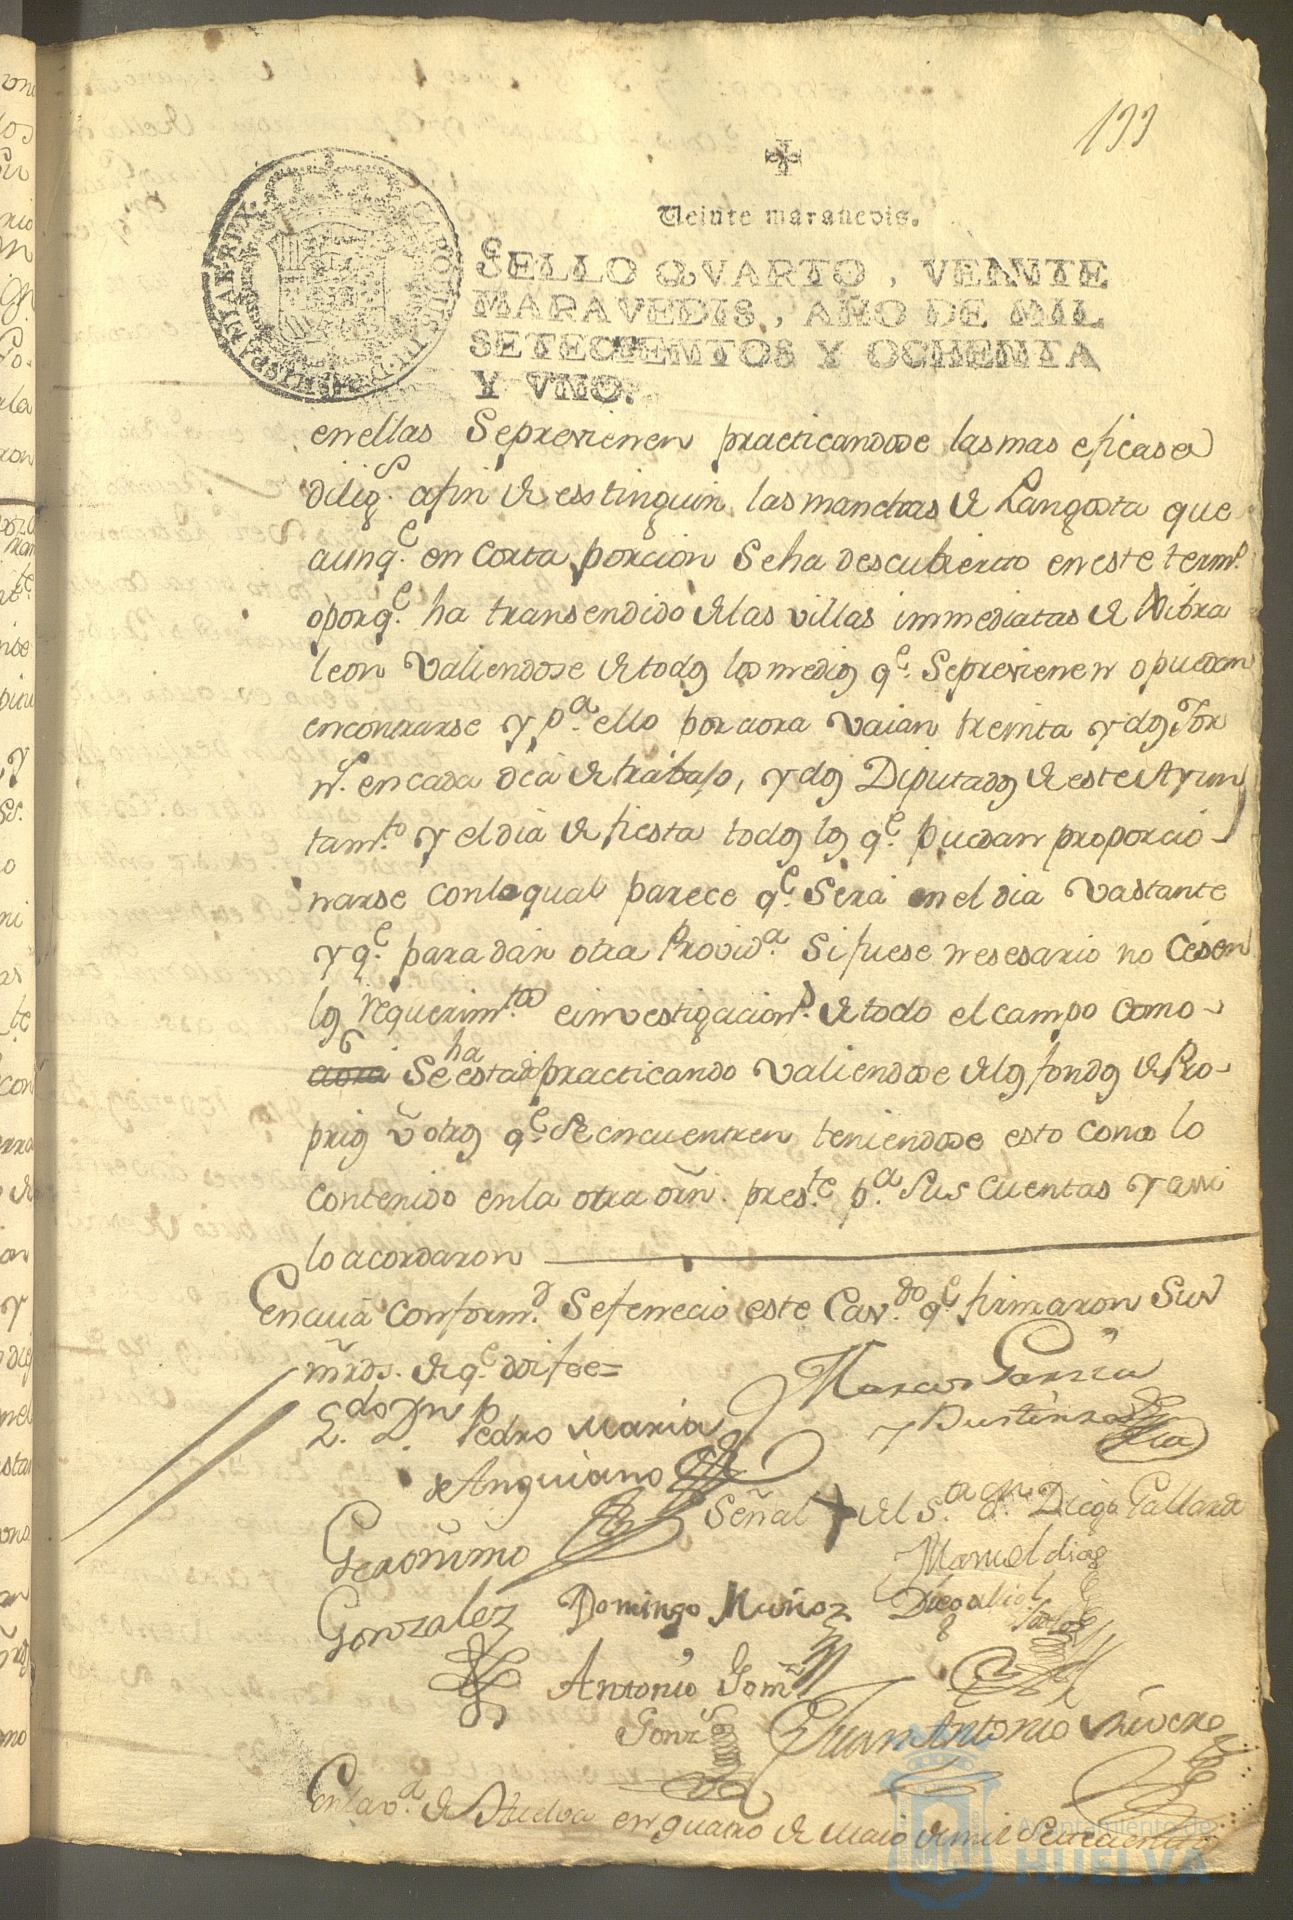 133
Veinte maravedis.
SELLO QVARTO, VEINTE
MARAVEDIS, AÑO DE MIL
SETECIENTOS Y OCHENTA
Y VNO.
en ellas Seprevienen practicandose las mas eficases
dilig.s afin de esstinguir las manchas de Langosta que
aunq.e en corta porcion Seha descubierto en este term.o
oporq.e ha transendido delas villas immediatas de Gibra
leon Valiendose de todos los medios q.e Seprevienen opuedan
encontrarse y p.a ello por aora vaian treinta y dos Jor
n.s en cada dia de trabajo, y dos Diputados de este Ayun
tam.to y el dia de fiesta todos los q.e puedan proporcio
narse conloqual parece q.e Será en el dia vastante
y q.e para dár otra Provid.a Si fuese nesesario no Cesen
los requerim.tos e investigacion.s de todo el campo como
aora Se ha estado practicando valiendose delos fondos de Pro-
prios ú otros q.e Se encuentren teniendose esto como lo
contenido en la otra orñ. pres.te p.a Sus cuentas y assi
lo acordaron
En cuia conform.d Sefenecio este Cav.do q.e firmaron Sus
mrds. de q.e doi fee=
L.do Dn Pedro Maria
de Anguiano
Marcos Garzia
y Bustinza
Señal + del S.or Dn Diego Gallardo
Geronimo
Gonzalez
Domingo Muñoz
Manuel dias
Antonio Gom.z
Gonz.s
Juan Antonio Rivero
En la v.a de Huelva en quatro de Maio de mil Setecientos
Ayuntamiento de
HUELVA